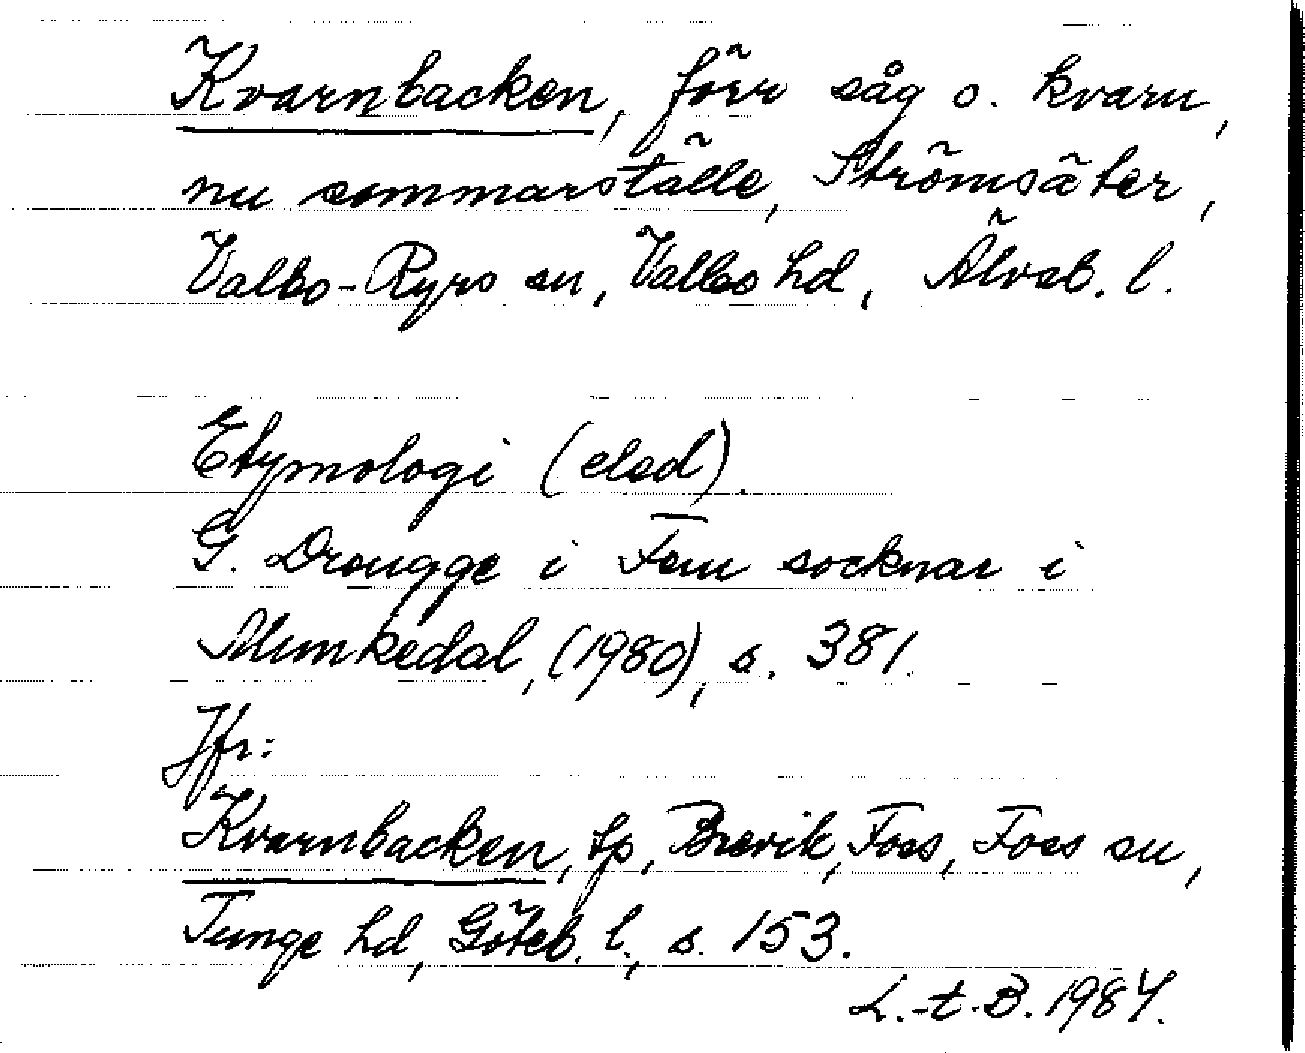 Kvarnbacken, förr såg o. kvarn,
nu sommarställe, Strömsäter,
Valbo-Ryrs sn, Valbo hd, Älvsb. l.
Etymologi (elsd).
G. Drougge i Fem socknar i
Munkedal, (1980), s. 381.
Jfr:
Kvarnbacken, tp, Brevik, Foss, Foss sn,
Tunge hd, Göteb. l., s. 153.
L.-t.B. 1984.